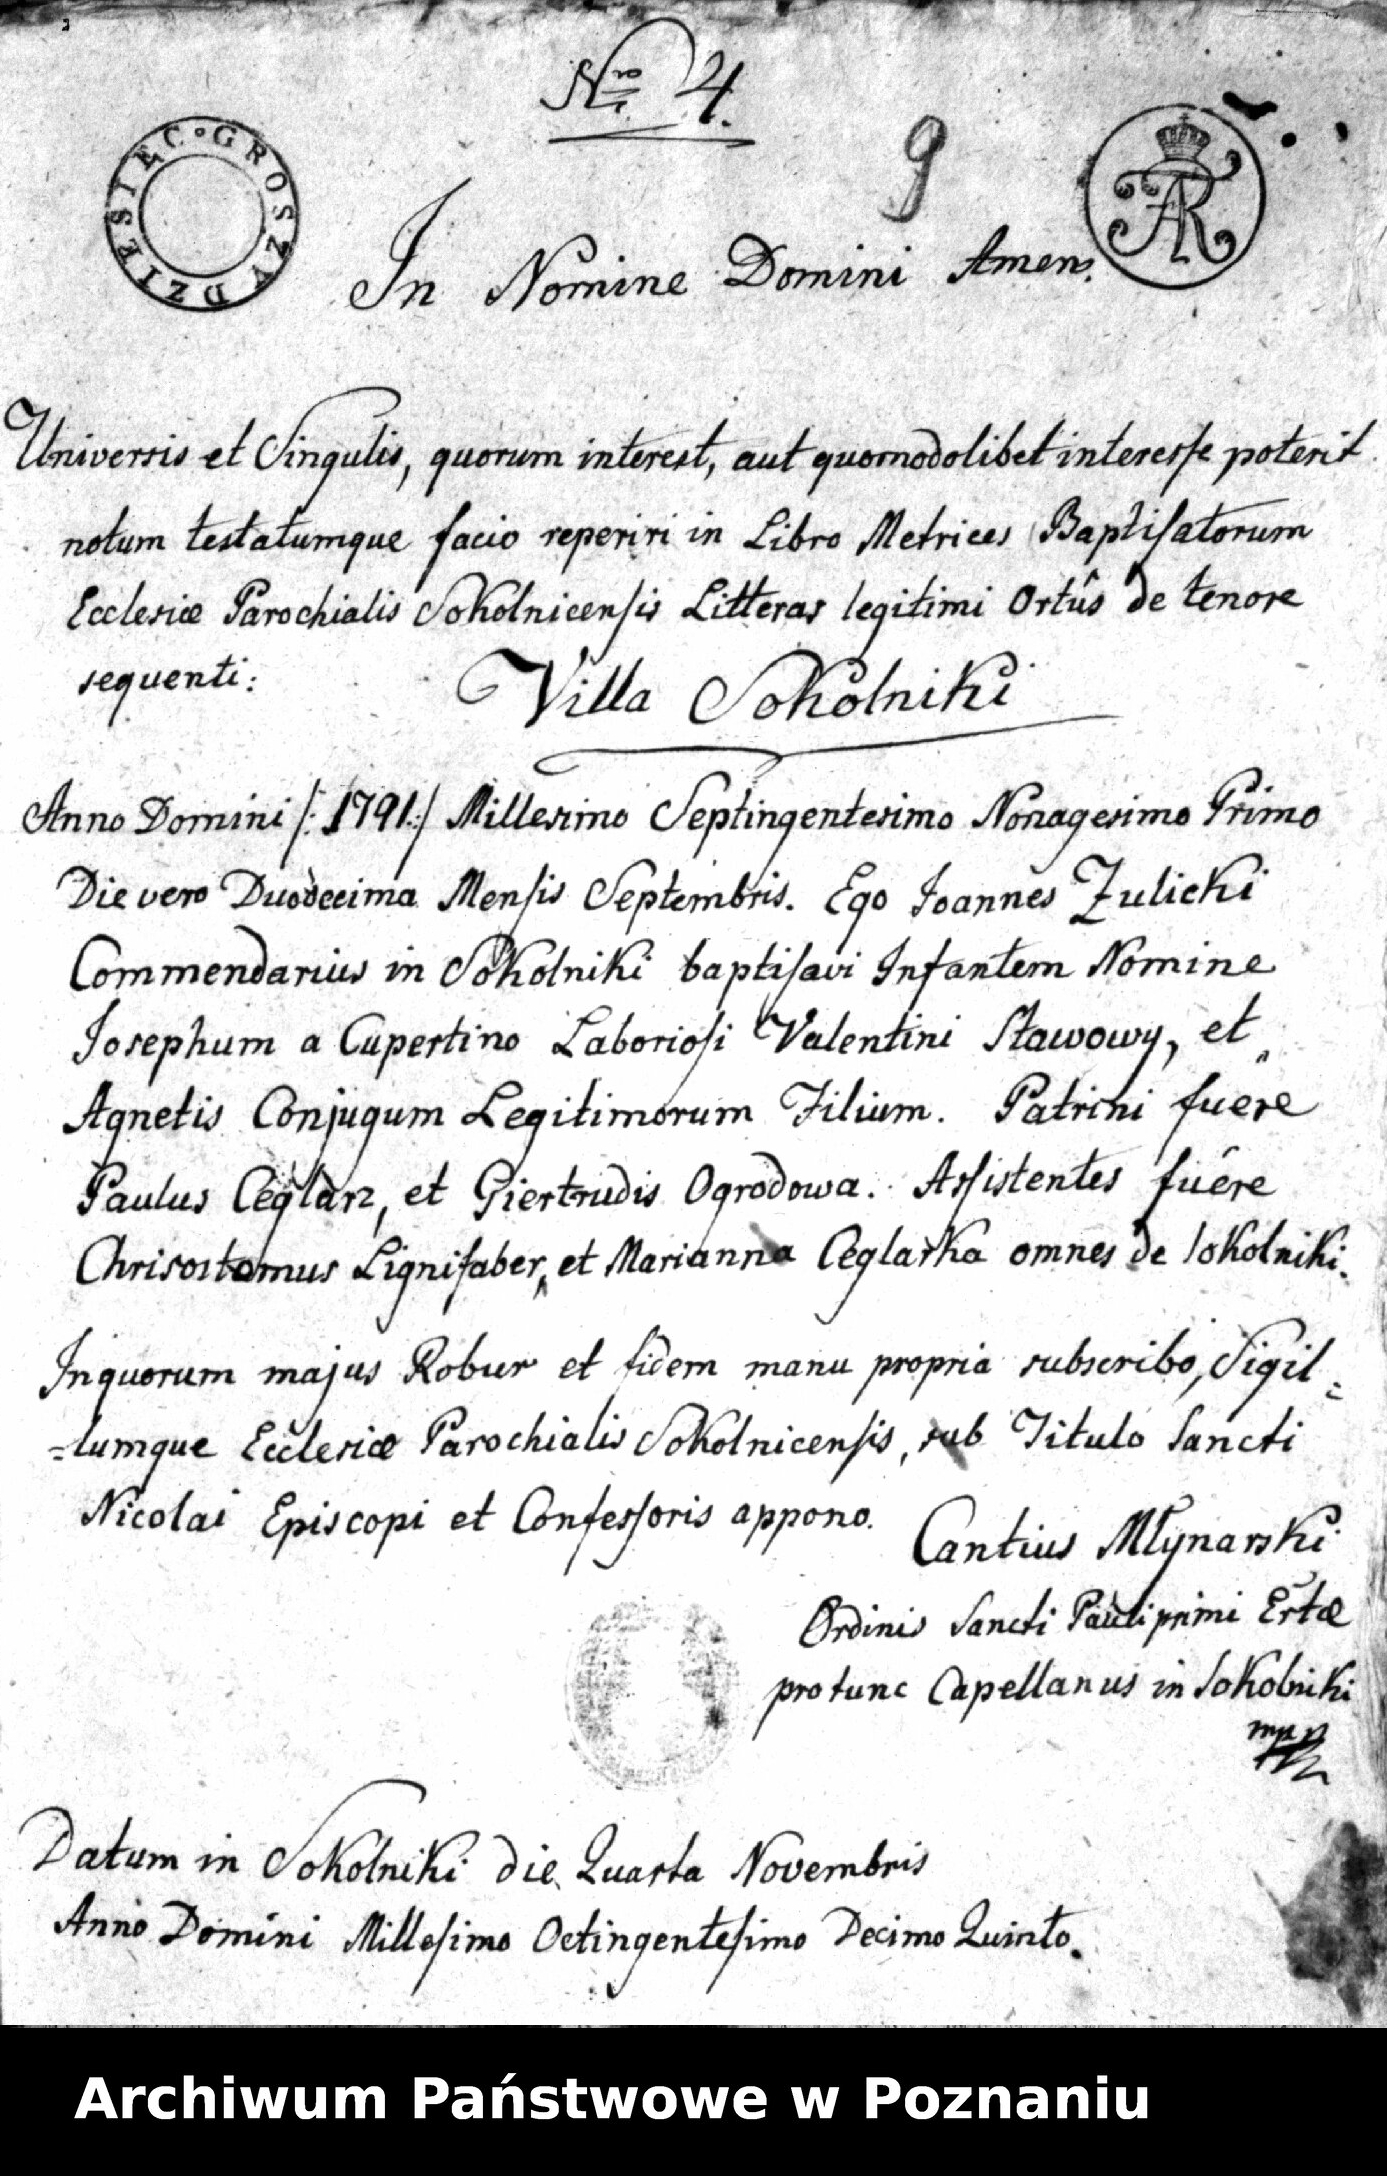 Nro 4.
9
DZIESIĘC GROSZY
FAR
In Nomine Domini Amen.
Universis et Singulis, quorum interest, aut quomodolibet interesse poterit
notum testatumque facio reperiri in Libro Metrices Baptisatorum
Ecclesiæ Parochialis Sokolnicensis Litteras legitimi Ortûs de tenore
sequenti:
Villa Sokolniki
Anno Domini /:1791:/ Millesimo Septingentesimo Nonagesimo Primo
Die vero Duodecima Mensis Septembris. Ego Joannes Zulicki
Commendarius in Sokolniki baptisavi Infantem Nomine
Josephum a Cupertino Laboriosi Valentini Stawowy, et
Agnetis Conjugum Legitimorum Filium. Patrini fuêre
Paulus Ceglarz, et Giertrudis Ogrodowa. Assistentes fuêre
Chrisostomus Lignifaber, et Marianna Ceglarka omnes de Sokolniki.
Inquorum majus Robur et fidem manu propria subscribo, Sigil=
=lumque Ecclesiæ Parochialis Sokolnicensis, sub Titulo Sancti
Nicolai Episcopi et Confessoris appono.
Cantius Młynarski
Ordinis Sancti Pauli primi Ertæ
protunc Capellanus in Sokolniki
mpp
Datum in Sokolniki die Quarta Novembris
Anno Domini Millesimo Octingentesimo Decimo Quinto.
Archiwum Państwowe w Poznaniu